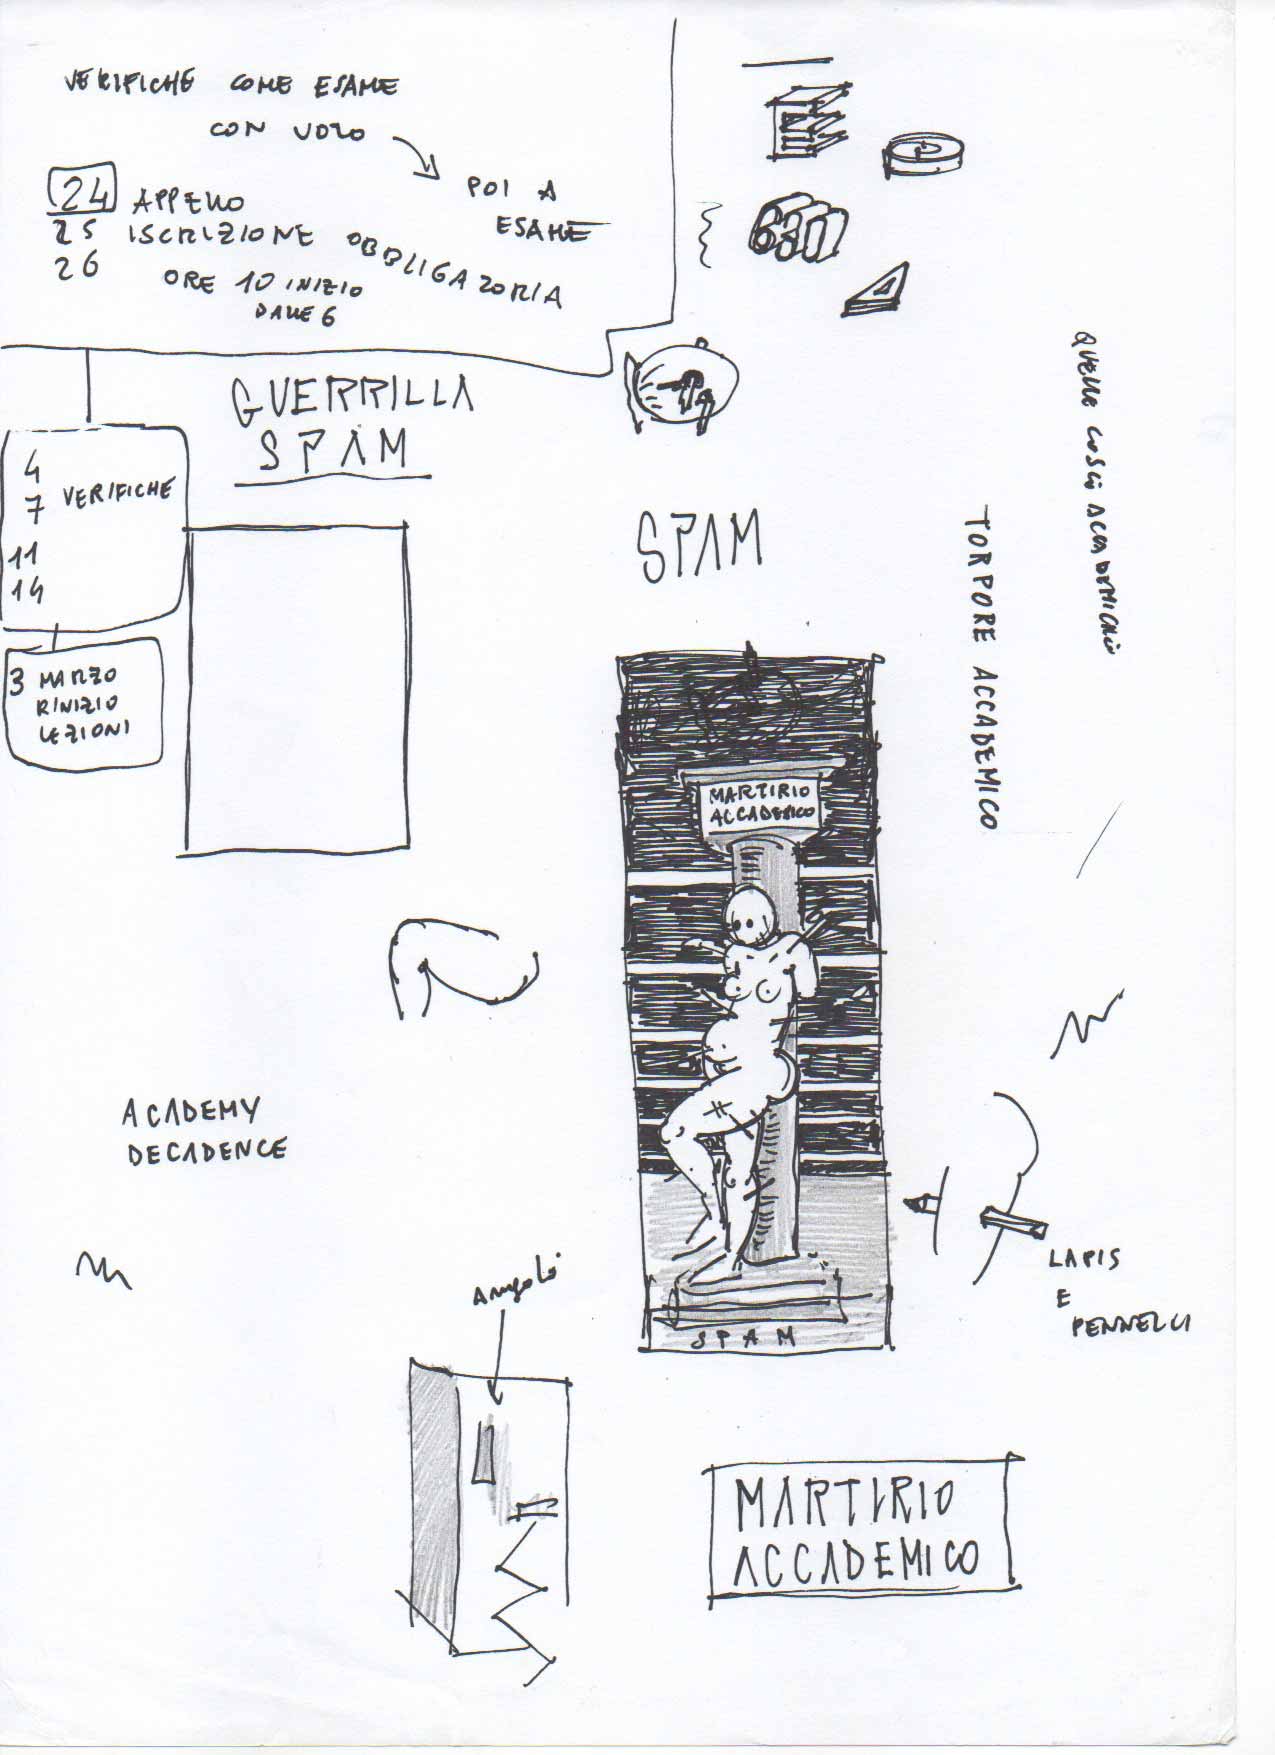 VERIFICHE COME ESAME
CON VOTO
POI A
ESAME
24 APPELLO
25 ISCRIZIONE OBBLIGATORIA
26
ORE 10 INIZIO
DALLE 6
630
GUERRILLA
SPAM
4
7 VERIFICHE
11
14
3 MARZO
RINIZIO
LEZIONI
SPAM
QUELLE COSCI ACCADEMICHE
TORPORE ACCADEMICO
MARTIRIO
ACCADEMICO
ACADEMY
DECADENCE
LAPIS
E
PENNELLI
SPAM
ANGOLO
MARTIRIO
ACCADEMICO